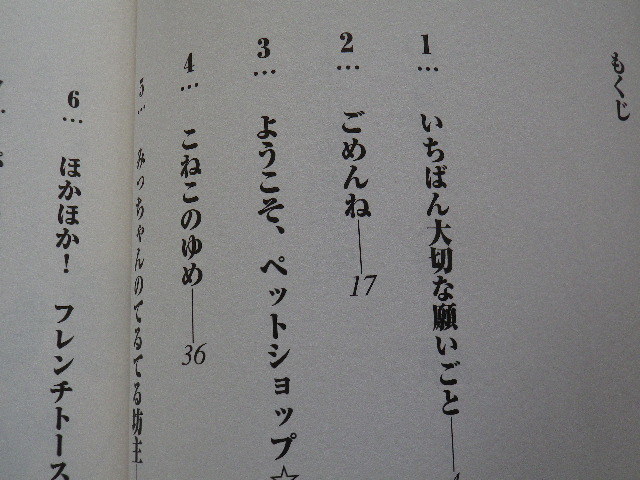 もくじ
1… いちばん大切な願いごと
2… ごめんね——17
3… ようこそ、ペットショップ☆
4… こねこのゆめ——36
5… みっちゃんのてるてる坊主
6… ほかほか! フレンチトース